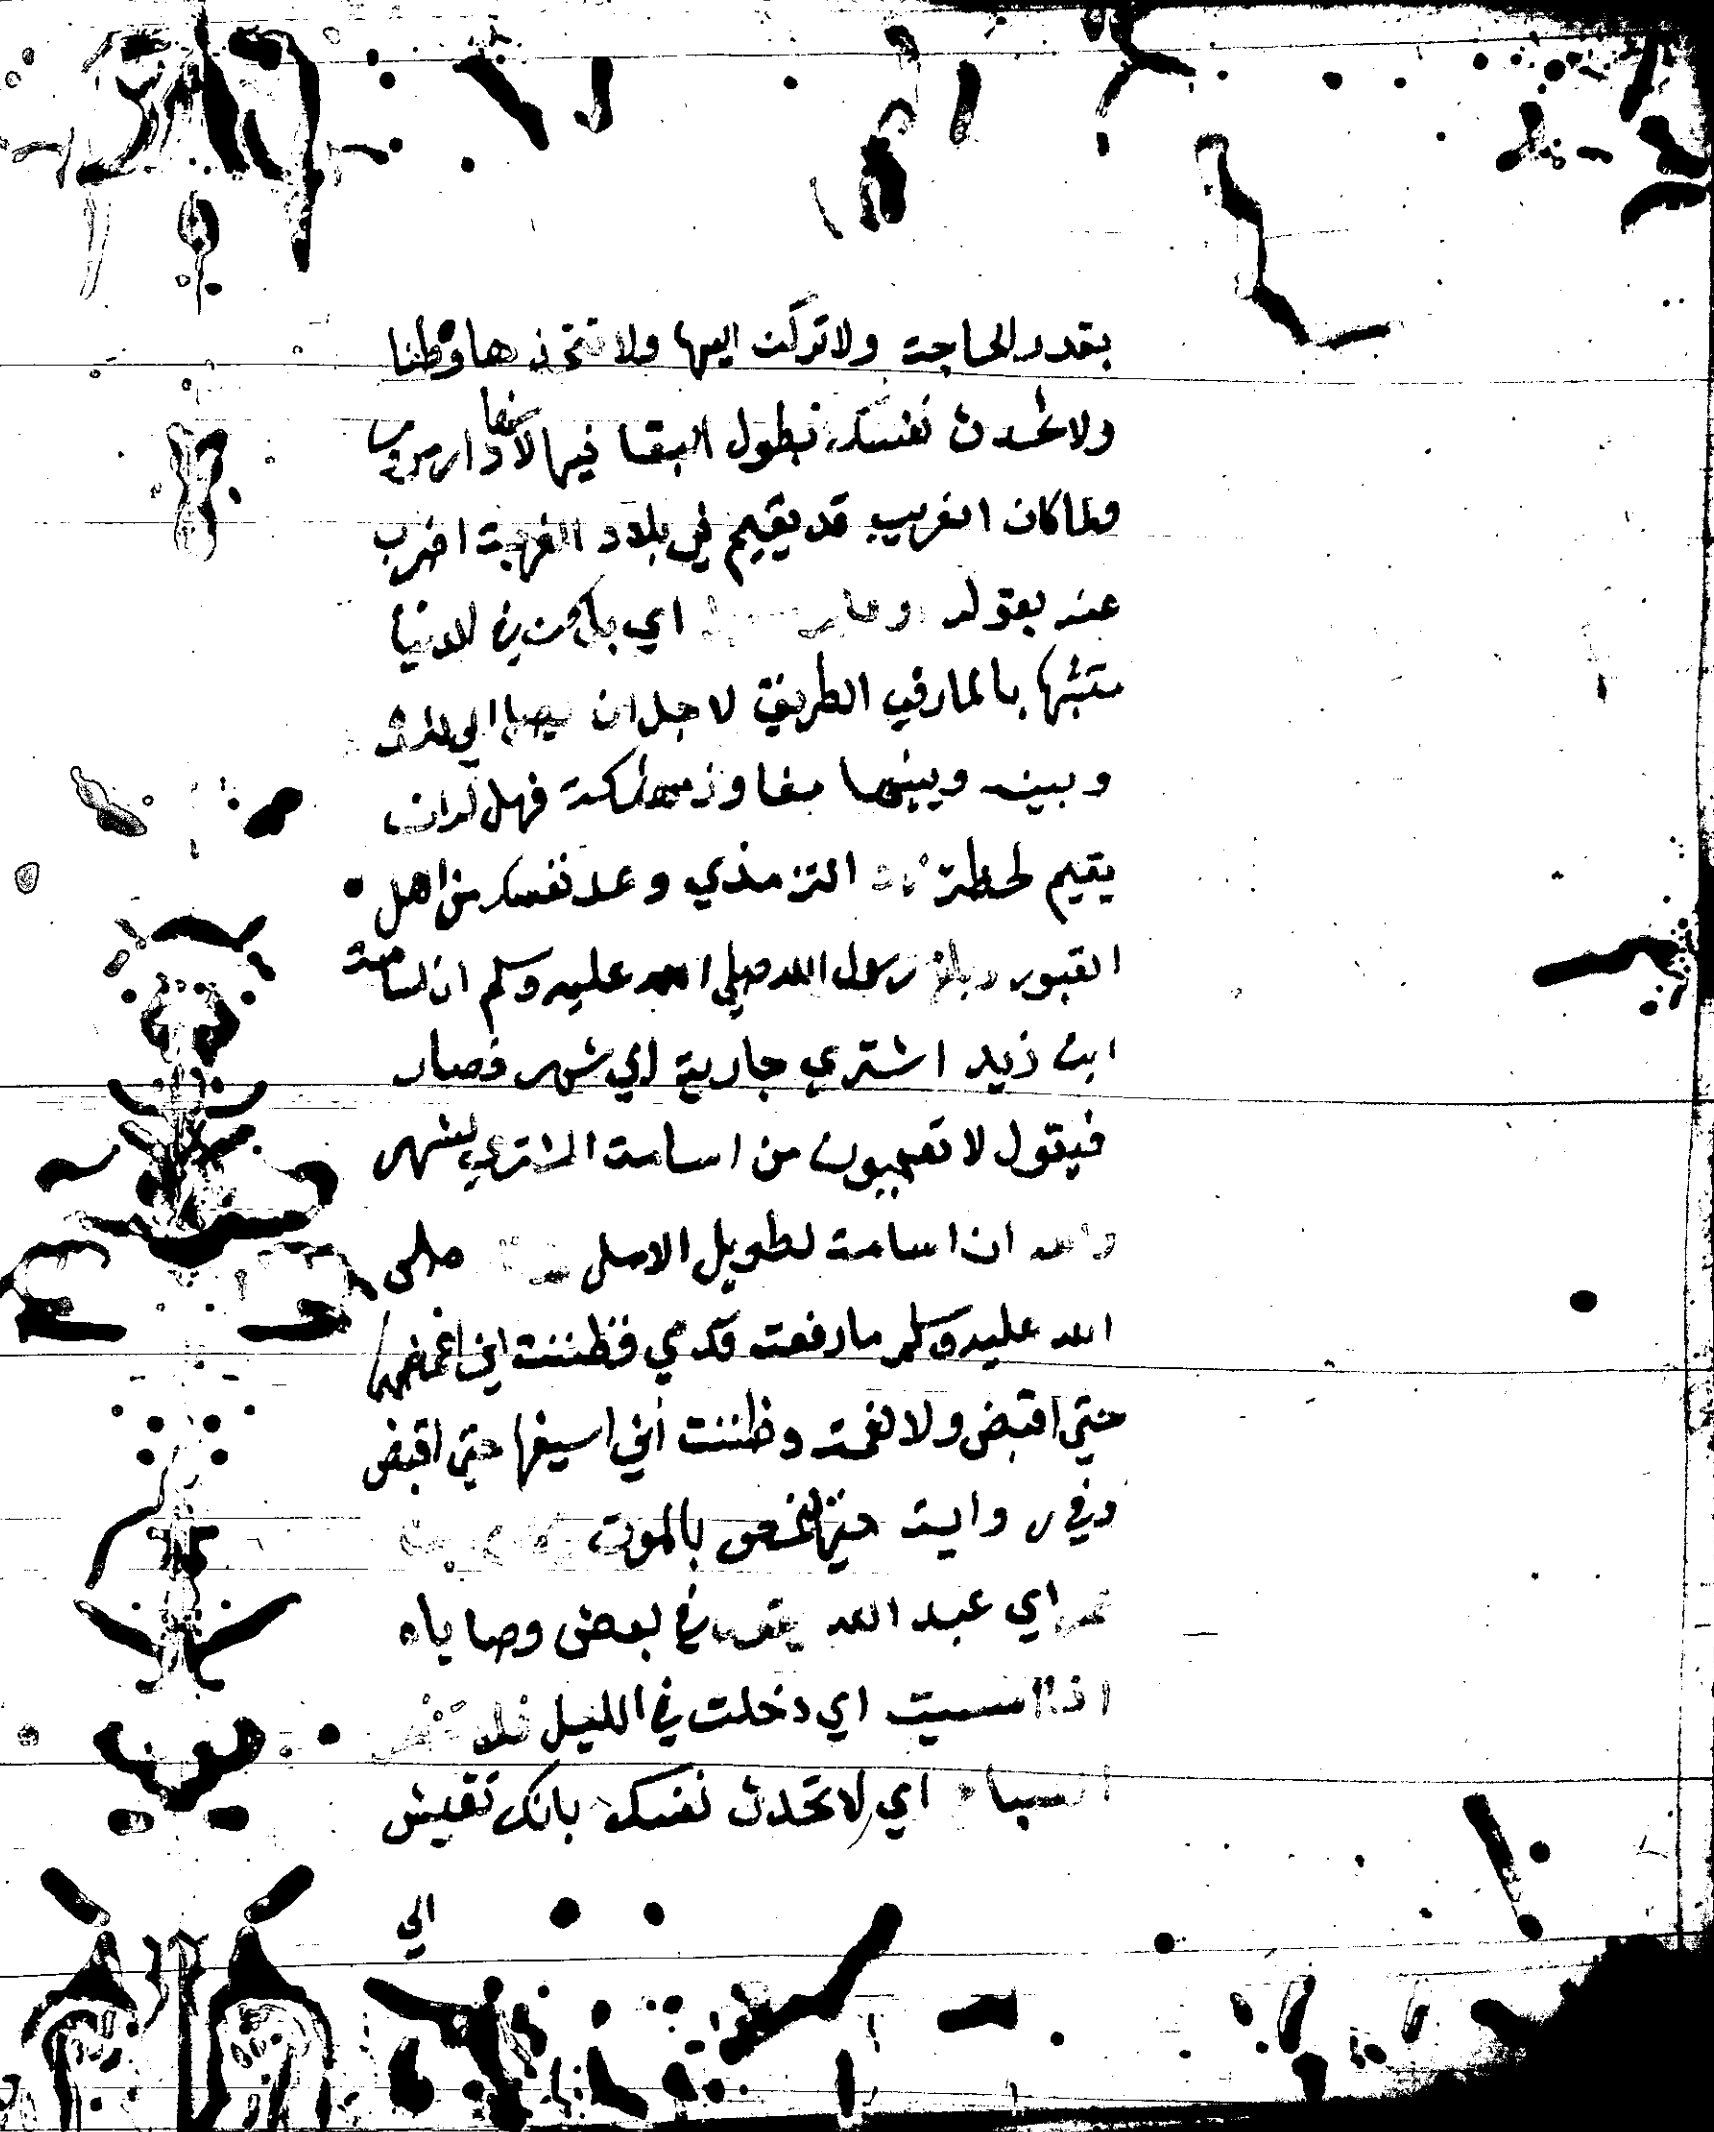 بقدر الحاجة ولا تركن اليها ولا تتخذها وطنا
ولا تحدث نفسك بطول البقا فيها لانها دار
ولما كان الغريب قد يقيم في بلاد الغربة اضرب
عنه بقوله او عابر اي باكن في الدنيا
متشبها بالمار في الطريق لاجل ان يصل الي
وبينه وبينها مفاوز مهلكة فهل له ان
يقيم لحظة الترمذي وعد نفسك من اهل
القبور رسول الله صلي الله عليه وسلم ان اسامة
ابن زيد اشتري جارية الي شهر فصار
فيقول لا تعجبون من اسامة المشتري لشهر
والله ان اسامة لطويل الامل صلى
الله عليه وسلم ما رفعت قدمي فظننت اني اضعها
حتي اقبض ولا لقمة وظننت أني اسيغها حتي اقبض
وفي رواية حتي اغص بالموت
اي عبد الله في بعض وصاياه
اذا امسيت اي دخلت في الليل فلا تنتظر
الصباح اي لا تحدث نفسك بانك تعيش
الي